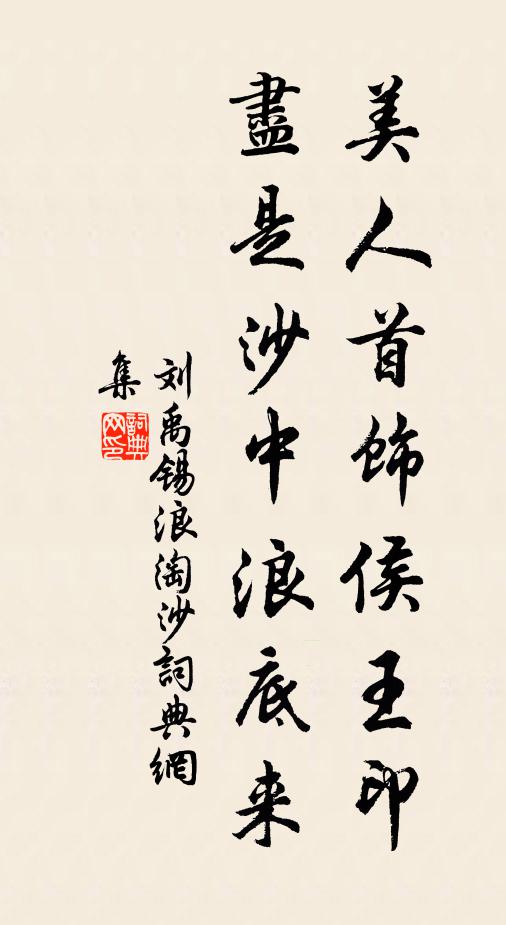 美人首飾侯王印
盡是沙中浪底来
刘禹锡浪淘沙詞典網
集
詞典网印